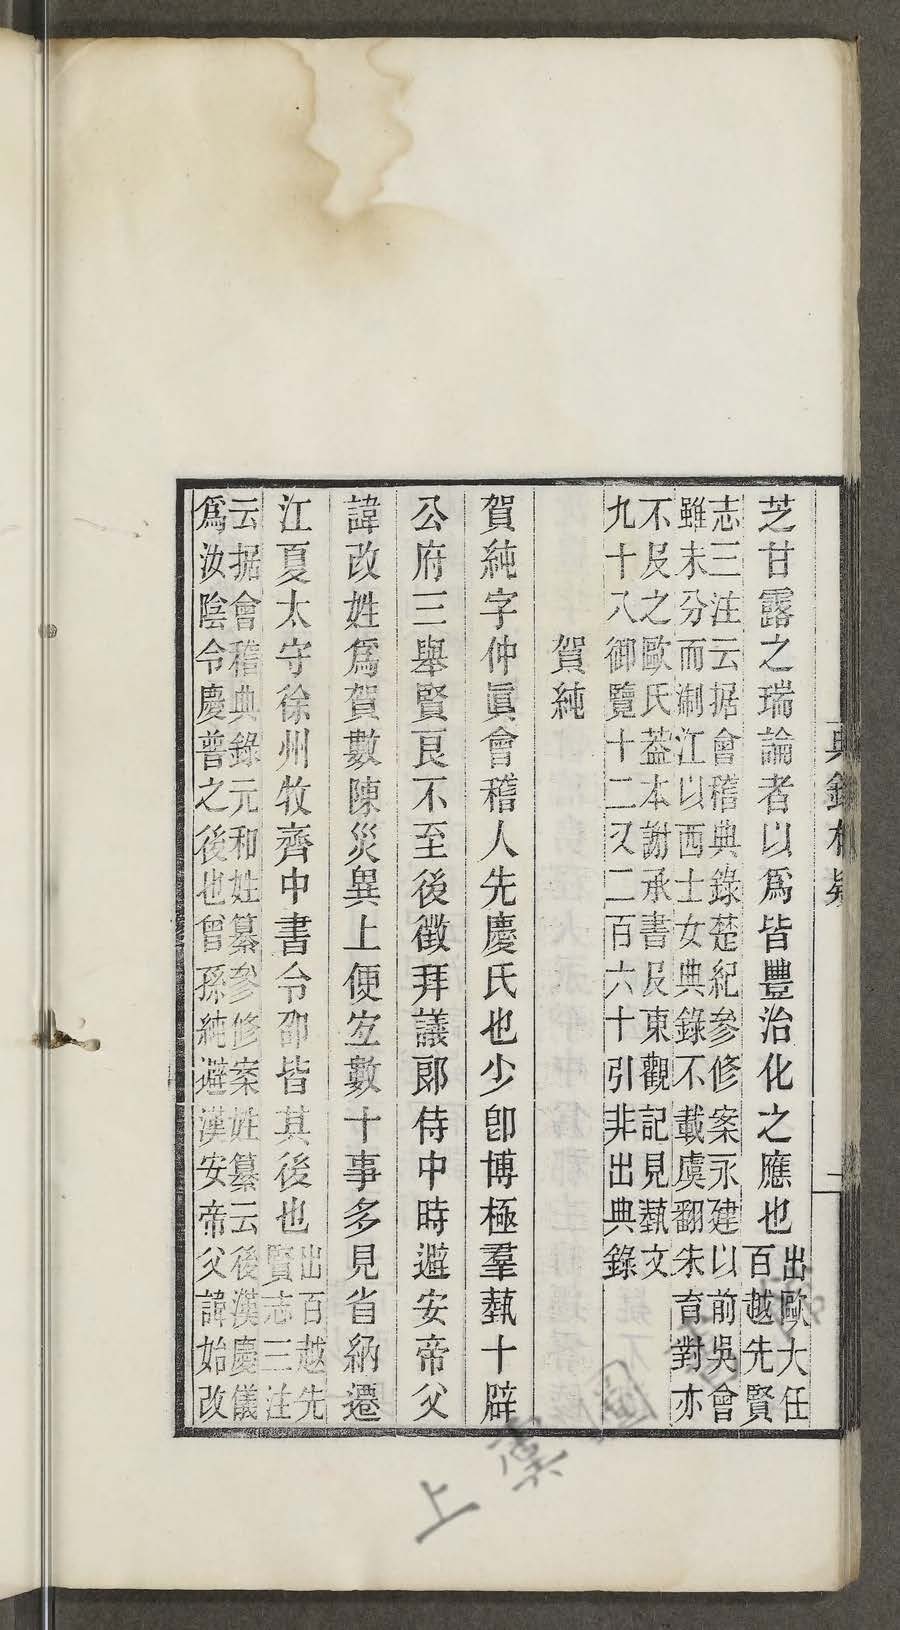 芝甘露之瑞論者以爲皆豐治化之應也出歐大任百越先賢
志三注云据會稽典錄楚紀参修案永建以前吳會
雖未分而淛江以西士女典錄不載虞翻朱育對亦
不及之歐氏葢本謝承書及東觀記見蓺文
九十八御覽十二又二百六十引非出典錄
賀純
賀純字仲眞會稽人先慶氏也少卽博極羣蓺十辟
公府三舉賢良不至後徵拜議郞侍中時避安帝父
諱改姓爲賀數陳災異上便宐數十事多見省納遷
江夏太守徐州牧齊中書令卲皆其後也出百越先賢志二注
云据會稽典錄元和姓纂参修案姓纂云後漢慶儀
爲汝陰令慶普之後也曾孫純避漢安帝父諱始改
典錄存疑
一
上虞圖